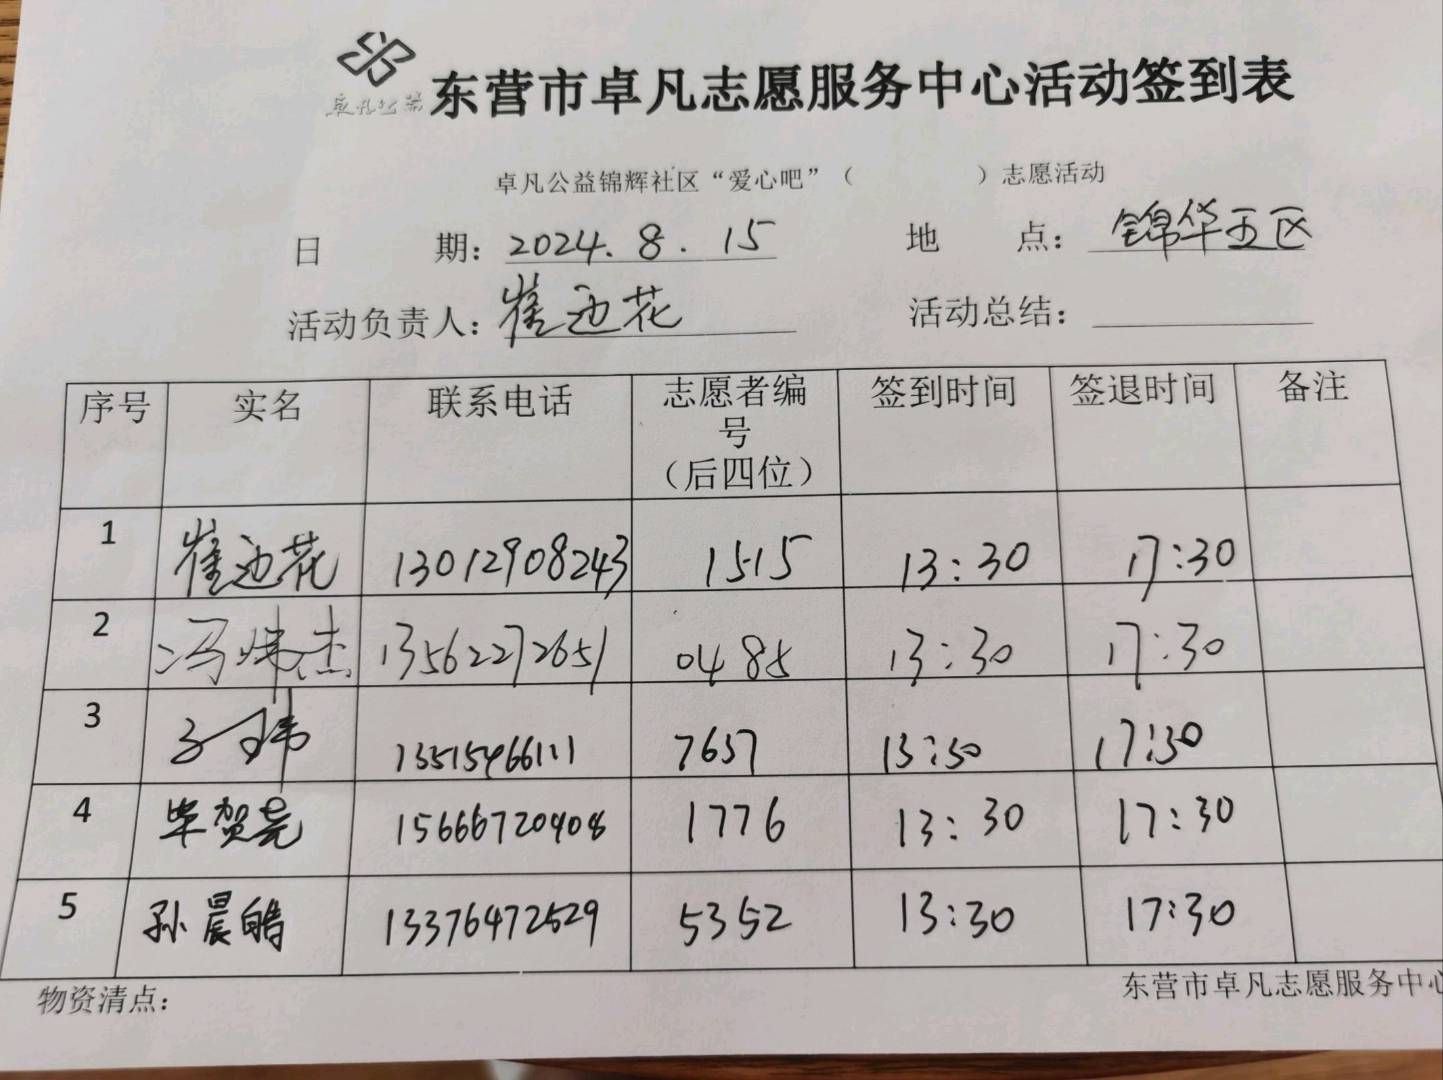 卓凡公益
东营市卓凡志愿服务中心活动签到表
卓凡公益锦辉社区“爱心吧”（ ）志愿活动
日 期：2024.8.15 地 点：锦华五区
活动负责人：崔迎花 活动总结：
序号 实名 联系电话 志愿者编号（后四位） 签到时间 签退时间 备注
1 崔迎花 13012908243 1515 13:30 17:30
2 冯炜杰 13562272651 0485 13:30 17:30
3 13515466111 7657 13:30 17:30
4 毕贺亮 15666720408 1776 13:30 17:30
5 孙晨皓 13376472529 5352 13:30 17:30
物资清点： 东营市卓凡志愿服务中心